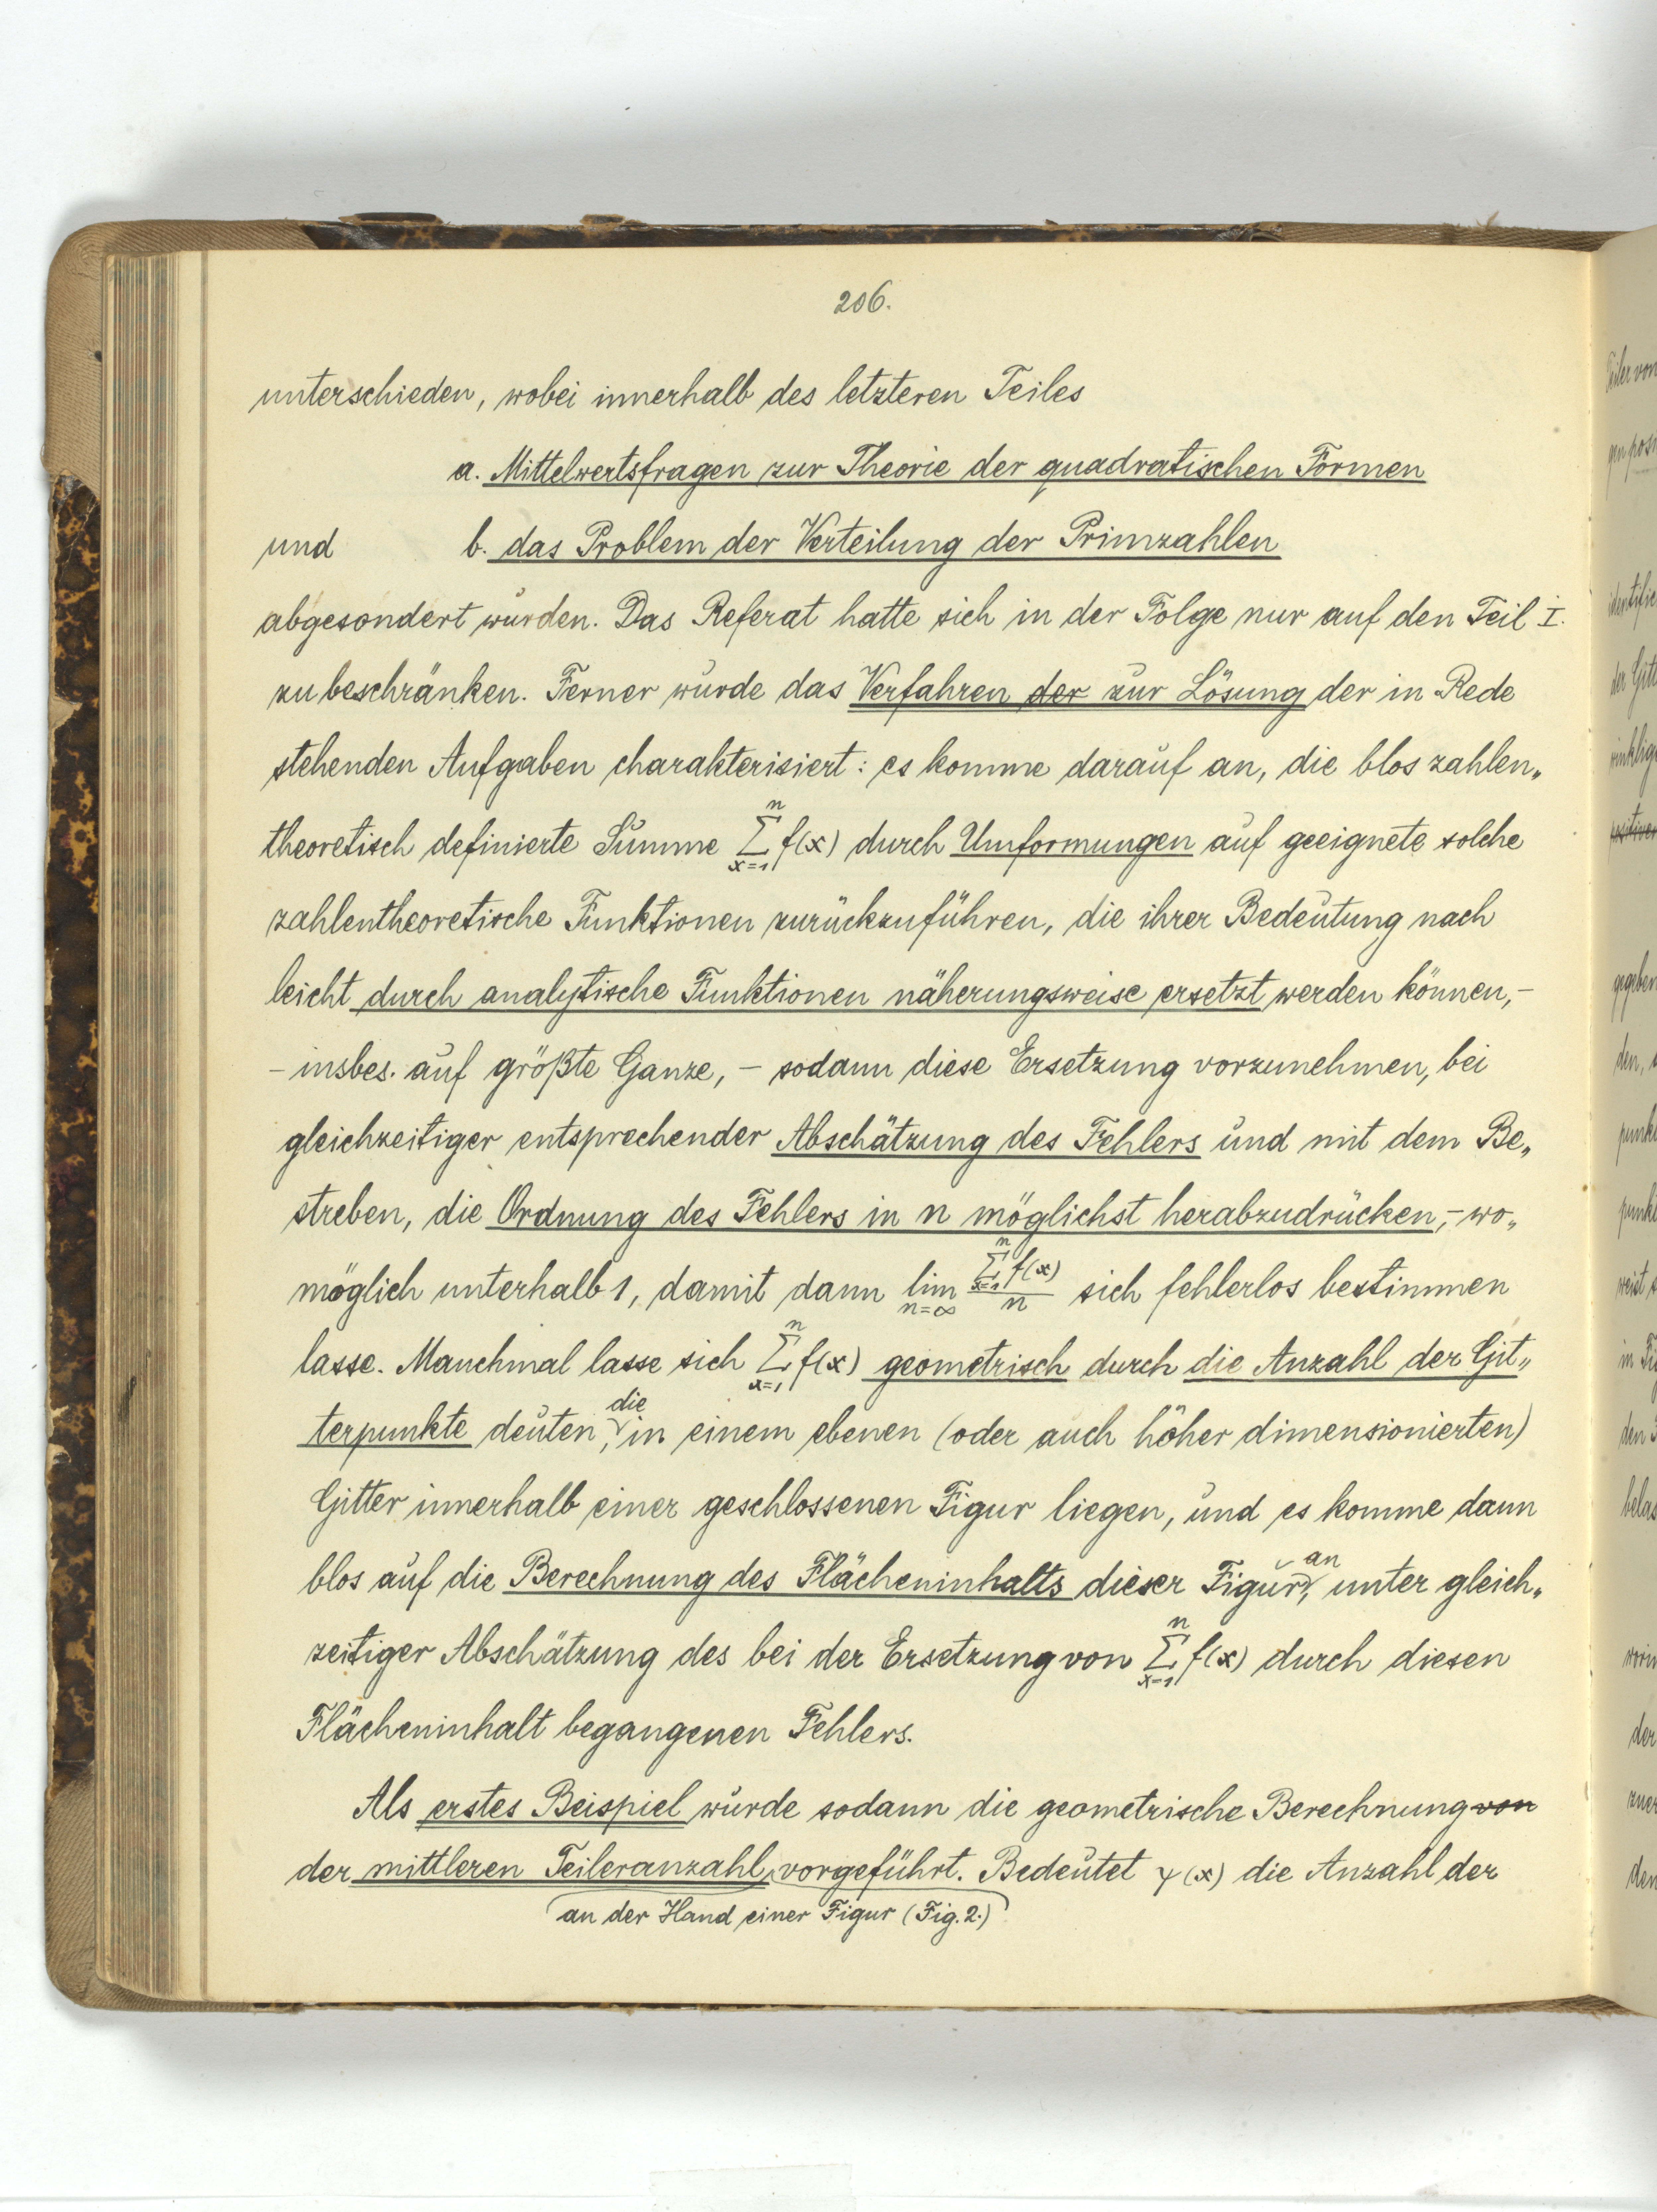 206.
unterschieden, wobei innerhalb des letzteren Teiles
a. Mittelwertsfragen zur Theorie der quadratischen Formen
und b. das Problem der Verteilung der Primzahlen
abgesondert wurden. Das Referat hatte sich in der Folge nur auf den Teil I.
zu beschränken. Ferner wurde das Verfahren der zur Lösung der in Rede
stehenden Aufgaben charakterisiert: es komme darauf an, die blos zahlen„
theoretisch definierte Summe \sum_{x=1}^{n} f(x) durch Umformungen auf geeignete solche
zahlentheoretische Funktionen zurückzuführen, die ihrer Bedeutung nach
leicht durch analytische Funktionen näherungsweise ersetzt werden können,–
– insbes. auf größte Ganze, – sodann diese Ersetzung vorzunehmen, bei
gleichzeitiger entsprechender Abschätzung des Fehlers und mit dem Be„
streben, die Ordnung des Fehlers in n möglichst herabzudrücken,– wo„
möglich unterhalb 1, damit dann \lim_{n=\infty} \frac{\sum_{x=1}^{n} f(x)}{n} sich fehlerlos bestimmen
lasse. Manchmal lasse sich \sum_{x=1}^{n} f(x) geometrisch durch die Anzahl der Git„
terpunkte deuten, die in einem ebenen (oder auch höher dimensionierten)
Gitter innerhalb einer geschlossenen Figur liegen, und es komme dann
blos auf die Berechnung des Flächeninhalts dieser Figur an, unter gleich„
zeitiger Abschätzung des bei der Ersetzung von \sum_{x=1}^{n} f(x) durch diesen
Flächeninhalt begangenen Fehlers.
Als erstes Beispiel wurde sodann die geometrische Berechnung von
der mittleren Teileranzahl vorgeführt. Bedeutet ψ(x) die Anzahl der
an der Hand einer Figur (Fig. 2.)